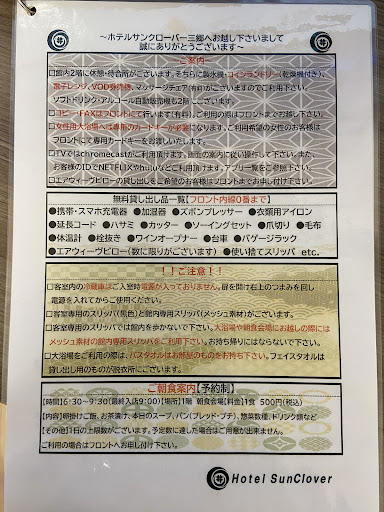 ～ホテルサンクローバー三郷へお越し下さいまして
誠にありがとうございます～
ご案内
□館内2階に休憩・待合所がございます。そちらに製氷機・コインランドリー(乾燥機付き)、
電子レンジ、VOD券売機、マッサージチェア(有料)がございますのでご利用下さい。
ソフトドリンク・アルコール自動販売機も2階にございます。
□コピー・FAXはフロントにて行います(有料)。ご利用の際はフロントまでお越し下さい。
□女性用大浴場へは専用のカードキーが必要になります。ご利用希望の女性のお客様は
フロントにて専用カードキーをお渡しいたします。
□TVではchromecastがご利用頂けます。画面の案内に従い操作して下さい。また、
お客様のIDでNETFLIXやhuluなどご利用頂けます。アプリ一覧をご参照下さい。
□エアウィーヴピローの貸し出しをご希望のお客様はフロントまでお申し付け下さい。
無料貸し出し品一覧【フロント内線0番まで】
●携帯・スマホ充電器 ●加湿器 ●ズボンプレッサー ●衣類用アイロン
●延長コード ●ハサミ ●カッター ●ソーイングセット ●爪切り ●毛布
●体温計 ●栓抜き ●ワインオープナー ●台車 ●バゲージラック
●エアウィーヴピロー(数に限りがございます) ●使い捨てスリッパ etc.
！！ご注意！！
□客室内の冷蔵庫はご入室時電源が入っておりません。扉を開け右上のつまみを回し
電源を入れてからご使用ください。
□客室専用のスリッパ(黒色)と館内専用スリッパ(メッシュ素材)がございます。
□客室専用のスリッパでは館内を歩かないで下さい。大浴場や朝食会場にお越しの際には
メッシュ素材の館内専用スリッパをご利用下さい。お持ち帰りにはならないで下さい。
□大浴場をご利用の際は、バスタオルはお部屋のものをお持ち下さい。フェイスタオルは
貸し出し用のものが脱衣所にございます。
ご朝食案内【予約制】
【時間】6:30～9:30(最終入店9:00)【場所】1階 朝食会場【料金】1食 500円(税込)
【内容】卵掛けご飯、お茶漬け、本日のスープ、パン(ブレッド・プチ)、惣菜数種、ドリンク類など
【その他】1日の上限数がございます。予定数に達した場合はご用意が出来ません。
ご利用の場合はフロントへお申し付け下さい。
Hotel SunClover